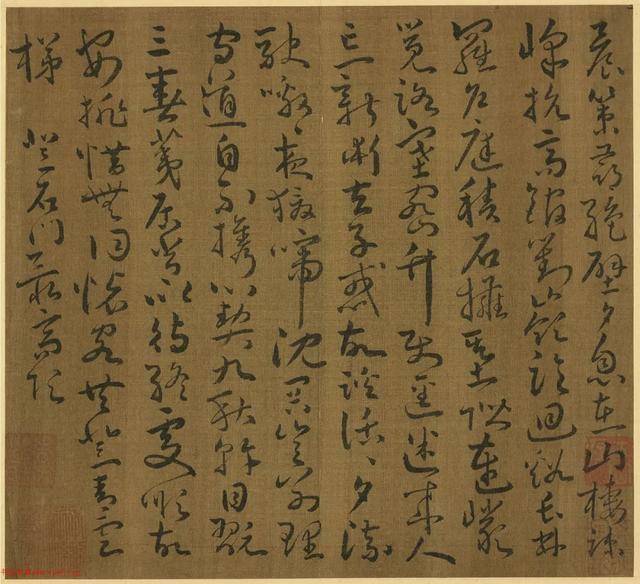 晨策尋絕壁夕息在山棲疎
峰抗高館對山領臨迴谿長林
羅戶庭積石擁基階連巖
覺路塞密竹使徑迷來人
忘新術去子惑故蹊活〻夕流
駛噭〻夜猿啼沈冥豈別理
守道自不攜心契九秋幹目翫
三春荑居常以待終處順故
安排惜無同懷客共登青雲
梯 登石門最高頂